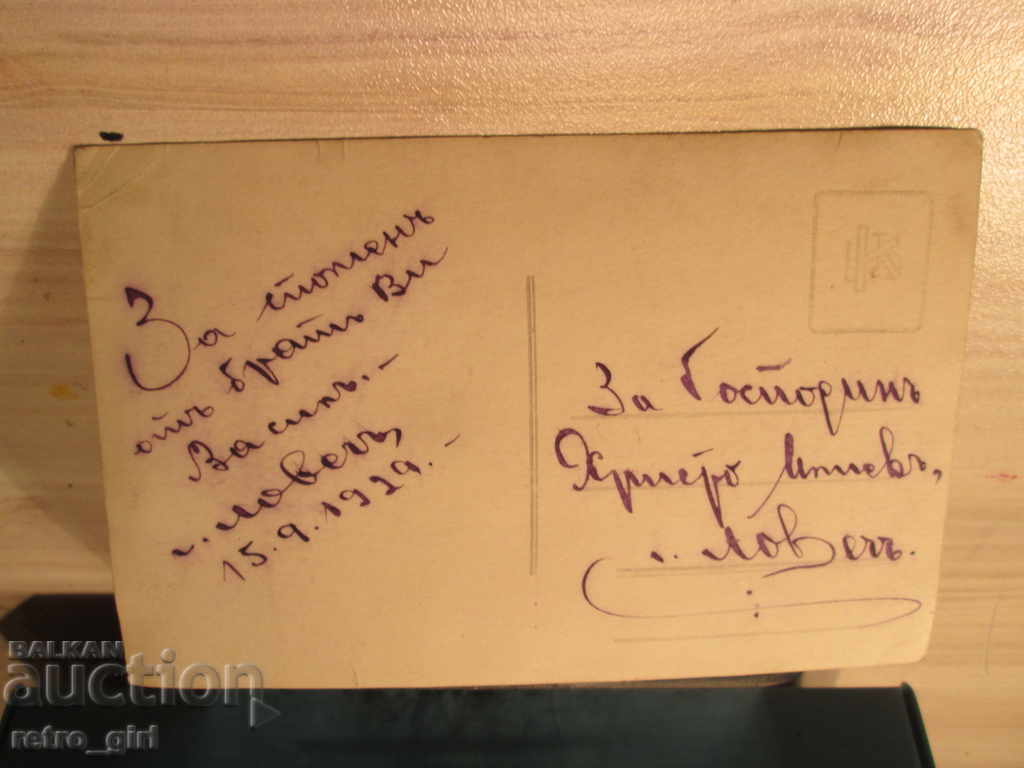 За споменъ
отъ братъ Ви
Васил.-
Ловечъ,
15.9.1929.-
За Господинъ
Христо
Ловечъ.
BALKAN
auction
retro_girl